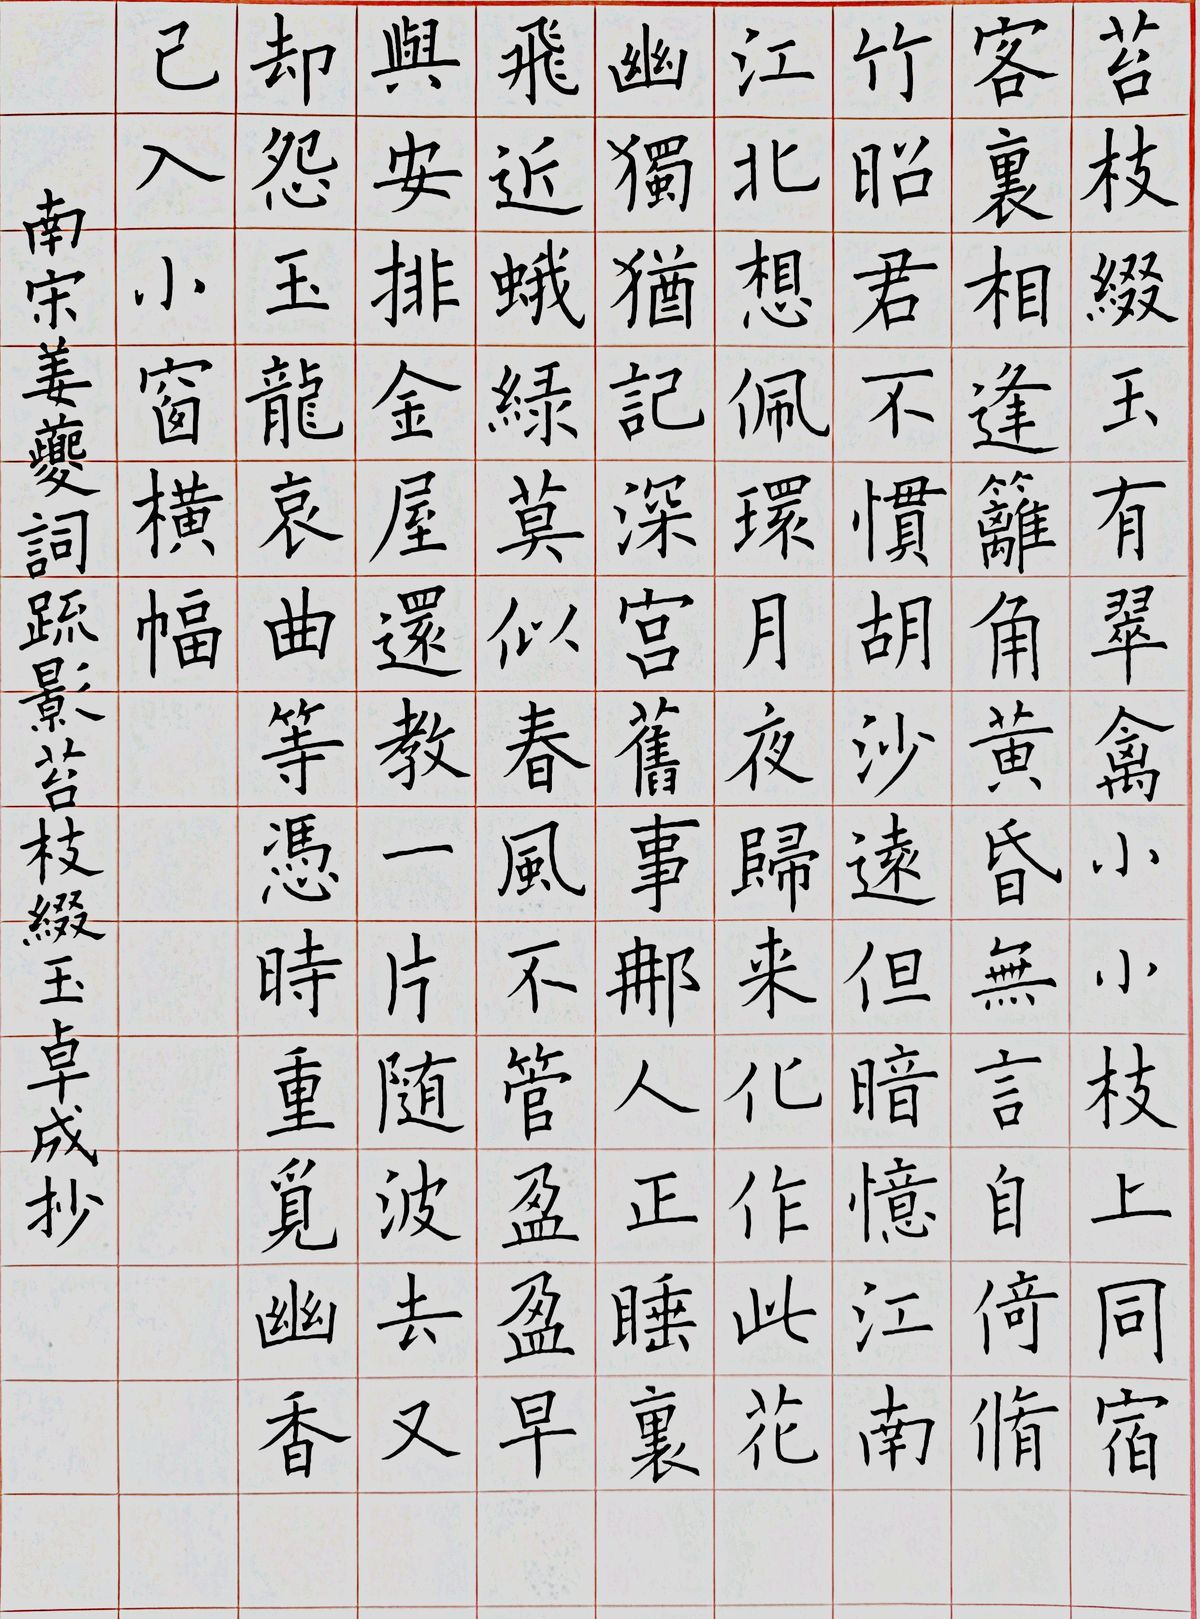 苔枝綴玉有翠禽小小枝上同宿
客裏相逢籬角黄昏無言自倚脩
竹昭君不慣胡沙遠但暗憶江南
江北想佩環月夜歸来化作此花
幽獨猶記深宫舊事那人正睡裏
飛近蛾緑莫似春風不管盈盈早
與安排金屋還教一片随波去又
却怨玉龍哀曲等憑時重覓幽香
已入小窗橫幅
南宋姜夔詞疏影苔枝綴玉卓成抄